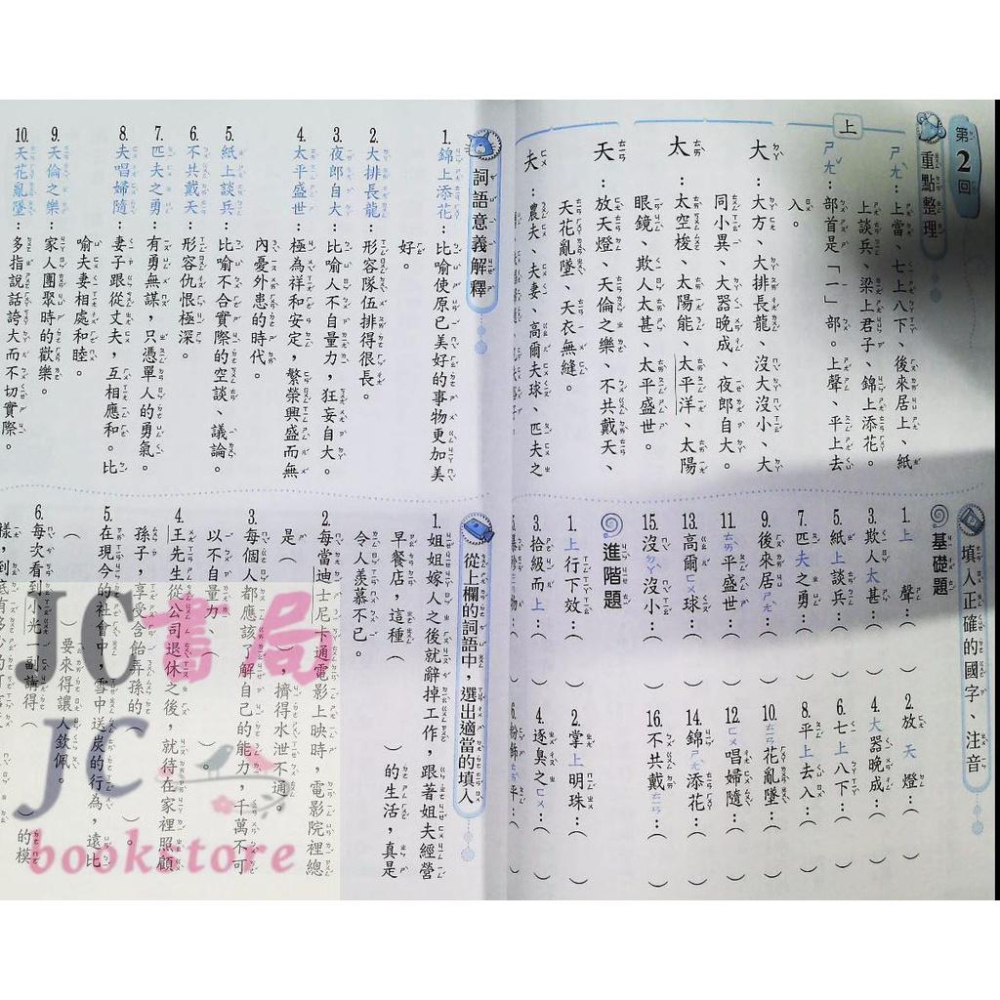 第2回
重點整理
上
ㄕㄤˋ：上當、七上八下、後來居上、紙
上談兵、梁上君子、錦上添花。
ㄕㄤˇ：部首是「一」部。上聲、平上去
入。
大ㄉㄚˋ：大方、大排長龍、沒大沒小、大
同小異、大器晚成、夜郎自大。
太ㄊㄞˋ：太空梭、太陽能、太平洋、太陽
眼鏡、欺人太甚、太平盛世。
天ㄊㄧㄢ：放天燈、天倫之樂、不共戴天、
天花亂墜、天衣無縫。
夫ㄈㄨ：農夫、夫妻、高爾夫球、匹夫之
填入正確的國字、注音
基礎題
1. 上聲：（　）
2. 放天燈：（　）
3. 欺人太甚：（　）
4. 大器晚成：（　）
5. 紙上談兵：（　）
6. 七上八下：（　）
7. 匹夫之勇：（　）
8. 平上去入：（　）
9. 後來居ㄕㄤˋ：（　）
10. ㄊㄧㄢ花亂墜：（　）
11. ㄊㄞˋ平盛世：（　）
12. ㄈㄨ唱婦隨：（　）
13. 高爾ㄈㄨ球：（　）
14. 錦ㄕㄤˋ添花：（　）
15. 沒ㄉㄚˋ沒小：（　）
16. 不共戴ㄊㄧㄢ：（　）
進階題
1. 上行下效：（　）
2. 掌上明珠：（　）
3. 拾級而上：（　）
4. 逐臭之ㄈㄨ：（　）
詞語意義解釋
1. 錦上添花：比喻使原已美好的事物更加美
好。
2. 大排長龍：形容隊伍排得很長。
3. 夜郎自大：比喻人不自量力，狂妄自大。
4. 太平盛世：極為祥和安定，繁榮興盛而無
內憂外患的時代。
5. 紙上談兵：比喻不合實際的空談、議論。
6. 不共戴天：形容仇恨極深。
7. 匹夫之勇：有勇無謀，只憑單人的勇氣。
8. 夫唱婦隨：妻子跟從丈夫，互相應和。比
喻夫妻相處和睦。
9. 天倫之樂：家人團聚時的歡樂。
10. 天花亂墜：多指說話誇大而不切實際。
從上欄的詞語中，選出適當的填入
1. 姐姐嫁人之後就辭掉工作，跟著姐夫經營
早餐店，這種（　）的生活，真是
令人羨慕不已。
2. 每當迪士尼卡通電影上映時，電影院裡總
是（　），擠得水泄不通。
3. 每個人都應該了解自己的能力，千萬不可
以不自量力、（　）。
4. 王先生從公司退休之後，就待在家裡照顧
孫子，享受含飴弄孫的（　）。
5. 在現今的社會中，雪中送炭的行為，遠比
（　）要來得讓人欽佩。
6. 每次看到小光一副講得（　）的模
JC書局
JC
bookstore